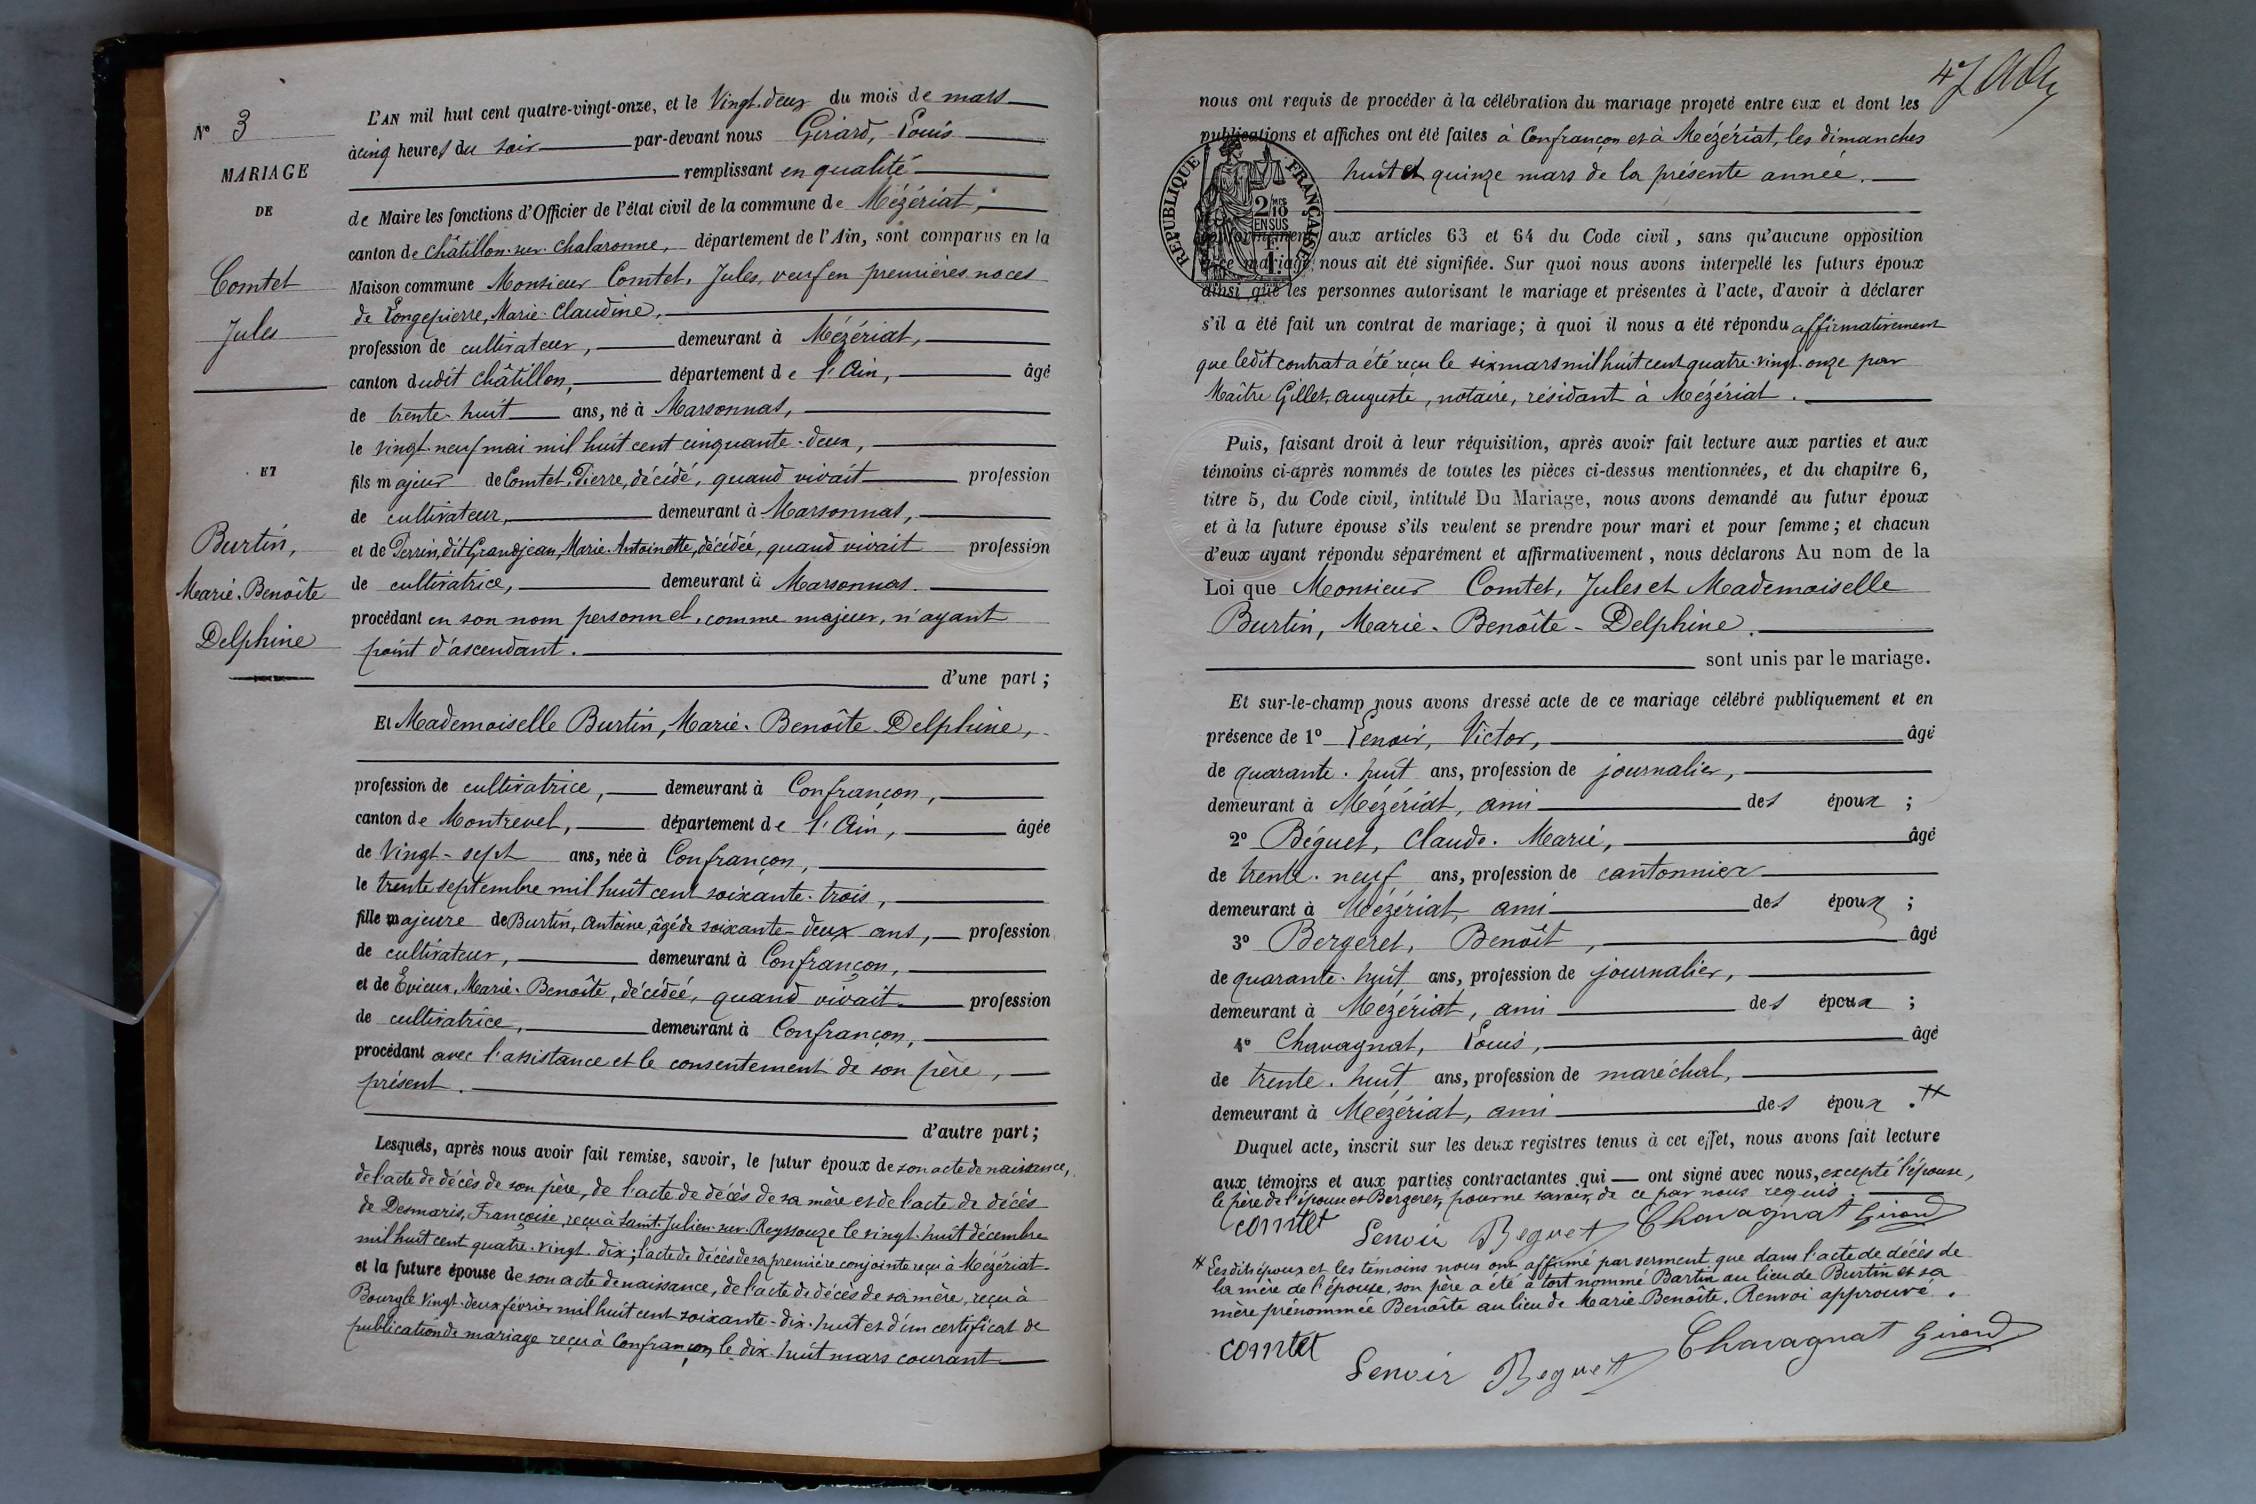 N° 3
MARIAGE
DE
Comtet
Jules
ET
Burtin,
Marie-Benoîte
Delphine
L'AN mil huit cent quatre-vingt-onze, et le Vingt-deux du mois de mars
à cinq heures du soir par-devant nous Girard, Louis
remplissant en qualité
de Maire les fonctions d'Officier de l'état civil de la commune de Mézériat,
canton de Châtillon-sur-Chalaronne, département de l'Ain, sont comparus en la
Maison commune Monsieur Comtet, Jules, veuf en premières noces
de Longepierre, Marie-Claudine,
profession de cultivateur, demeurant à Mézériat,
canton dudit Châtillon, département de l'Ain, âgé
de trente-huit ans, né à Marsonnas,
le vingt-neuf mai mil huit cent cinquante-deux,
fils majeur de Comtet, Pierre, décédé, quand vivait profession
de cultivateur, demeurant à Marsonnas,
et de Perrin, dit Grandjean, Marie-Antoinette, décédée, quand vivait profession
de cultivatrice, demeurant à Marsonnas.
procédant en son nom personnel, comme majeur, n'ayant
point d'ascendant.
d'une part;
Et Mademoiselle Burtin, Marie-Benoîte-Delphine,
profession de cultivatrice, demeurant à Confrançon,
canton de Montrevel, département de l'Ain, âgée
de Vingt-sept ans, née à Confrançon,
le trente septembre mil huit cent soixante-trois,
fille majeure de Burtin, Antoine, âgé de soixante-deux ans, profession
de cultivateur, demeurant à Confrançon,
et de Evieux, Marie-Benoîte, décédée, quand vivait profession
de cultivatrice, demeurant à Confrançon,
procédant avec l'assistance et le consentement de son père,
présent.
d'autre part;
Lesquels, après nous avoir fait remise, savoir, le futur époux de son acte de naissance,
de l'acte de décès de son père, de l'acte de décès de sa mère et de l'acte de décès
de Desmaris, Françoise, reçu à Saint-Julien-sur-Reyssouze le vingt-huit décembre
mil huit cent quatre-vingt-dix; l'acte de décès de sa première conjointe reçu à Mézériat
et la future épouse de son acte de naissance, de l'acte de décès de sa mère, reçu à
Bourg le Vingt-deux février mil huit cent soixante-dix-huit et d'un certificat de
publication de mariage reçu à Confrançon le dix-huit mars courant
47
nous ont requis de procéder à la célébration du mariage projeté entre eux et dont les
publications et affiches ont été faites à Confrançon et à Mézériat, les dimanches
huit et quinze mars de la présente année.
RÉPUBLIQUE FRANÇAISE
2/10
EN SUS
1 F.
conformément aux articles 63 et 64 du Code civil, sans qu'aucune opposition
à ce mariage nous ait été signifiée. Sur quoi nous avons interpellé les futurs époux
ainsi que les personnes autorisant le mariage et présentes à l'acte, d'avoir à déclarer
s'il a été fait un contrat de mariage; à quoi il nous a été répondu affirmativement
que ledit contrat a été reçu le six mars mil huit cent quatre-vingt-onze par
Maître Gillet, Auguste, notaire, résidant à Mézériat.
Puis, faisant droit à leur réquisition, après avoir fait lecture aux parties et aux
témoins ci-après nommés de toutes les pièces ci-dessus mentionnées, et du chapitre 6,
titre 5, du Code civil, intitulé Du Mariage, nous avons demandé au futur époux
et à la future épouse s'ils veulent se prendre pour mari et pour femme; et chacun
d'eux ayant répondu séparément et affirmativement, nous déclarons Au nom de la
Loi que Monsieur Comtet, Jules et Mademoiselle
Burtin, Marie-Benoîte-Delphine.
sont unis par le mariage.
Et sur-le-champ nous avons dressé acte de ce mariage célébré publiquement et en
présence de 1° Lenoir, Victor, âgé
de quarante-huit ans, profession de journalier,
demeurant à Mézériat, ami des époux;
2° Béguet, Claude-Marie, âgé
de trente-neuf ans, profession de cantonnier
demeurant à Mézériat, ami des époux;
3° Bergeret, Benoît, âgé
de quarante-huit ans, profession de journalier,
demeurant à Mézériat, ami des époux;
4° Chavagnat, Louis, âgé
de trente-huit ans, profession de maréchal,
demeurant à Mézériat, ami des époux. #
Duquel acte, inscrit sur les deux registres tenus à cet effet, nous avons fait lecture
aux témoins et aux parties contractantes qui ont signé avec nous, excepté l'épouse,
le père de l'épouse et Bergeret, pour ne savoir, de ce par nous requis.
comtet Lenoir Beguet Chavagnat Girard
# Lesdits époux et les témoins nous ont affirmé par serment que dans l'acte de décès de
la mère de l'épouse, son père a été à tort nommé Bartin au lieu de Burtin et sa
mère prénommée Benoîte au lieu de Marie-Benoîte. Renvoi approuvé.
comtet Lenoir Beguet Chavagnat Girard